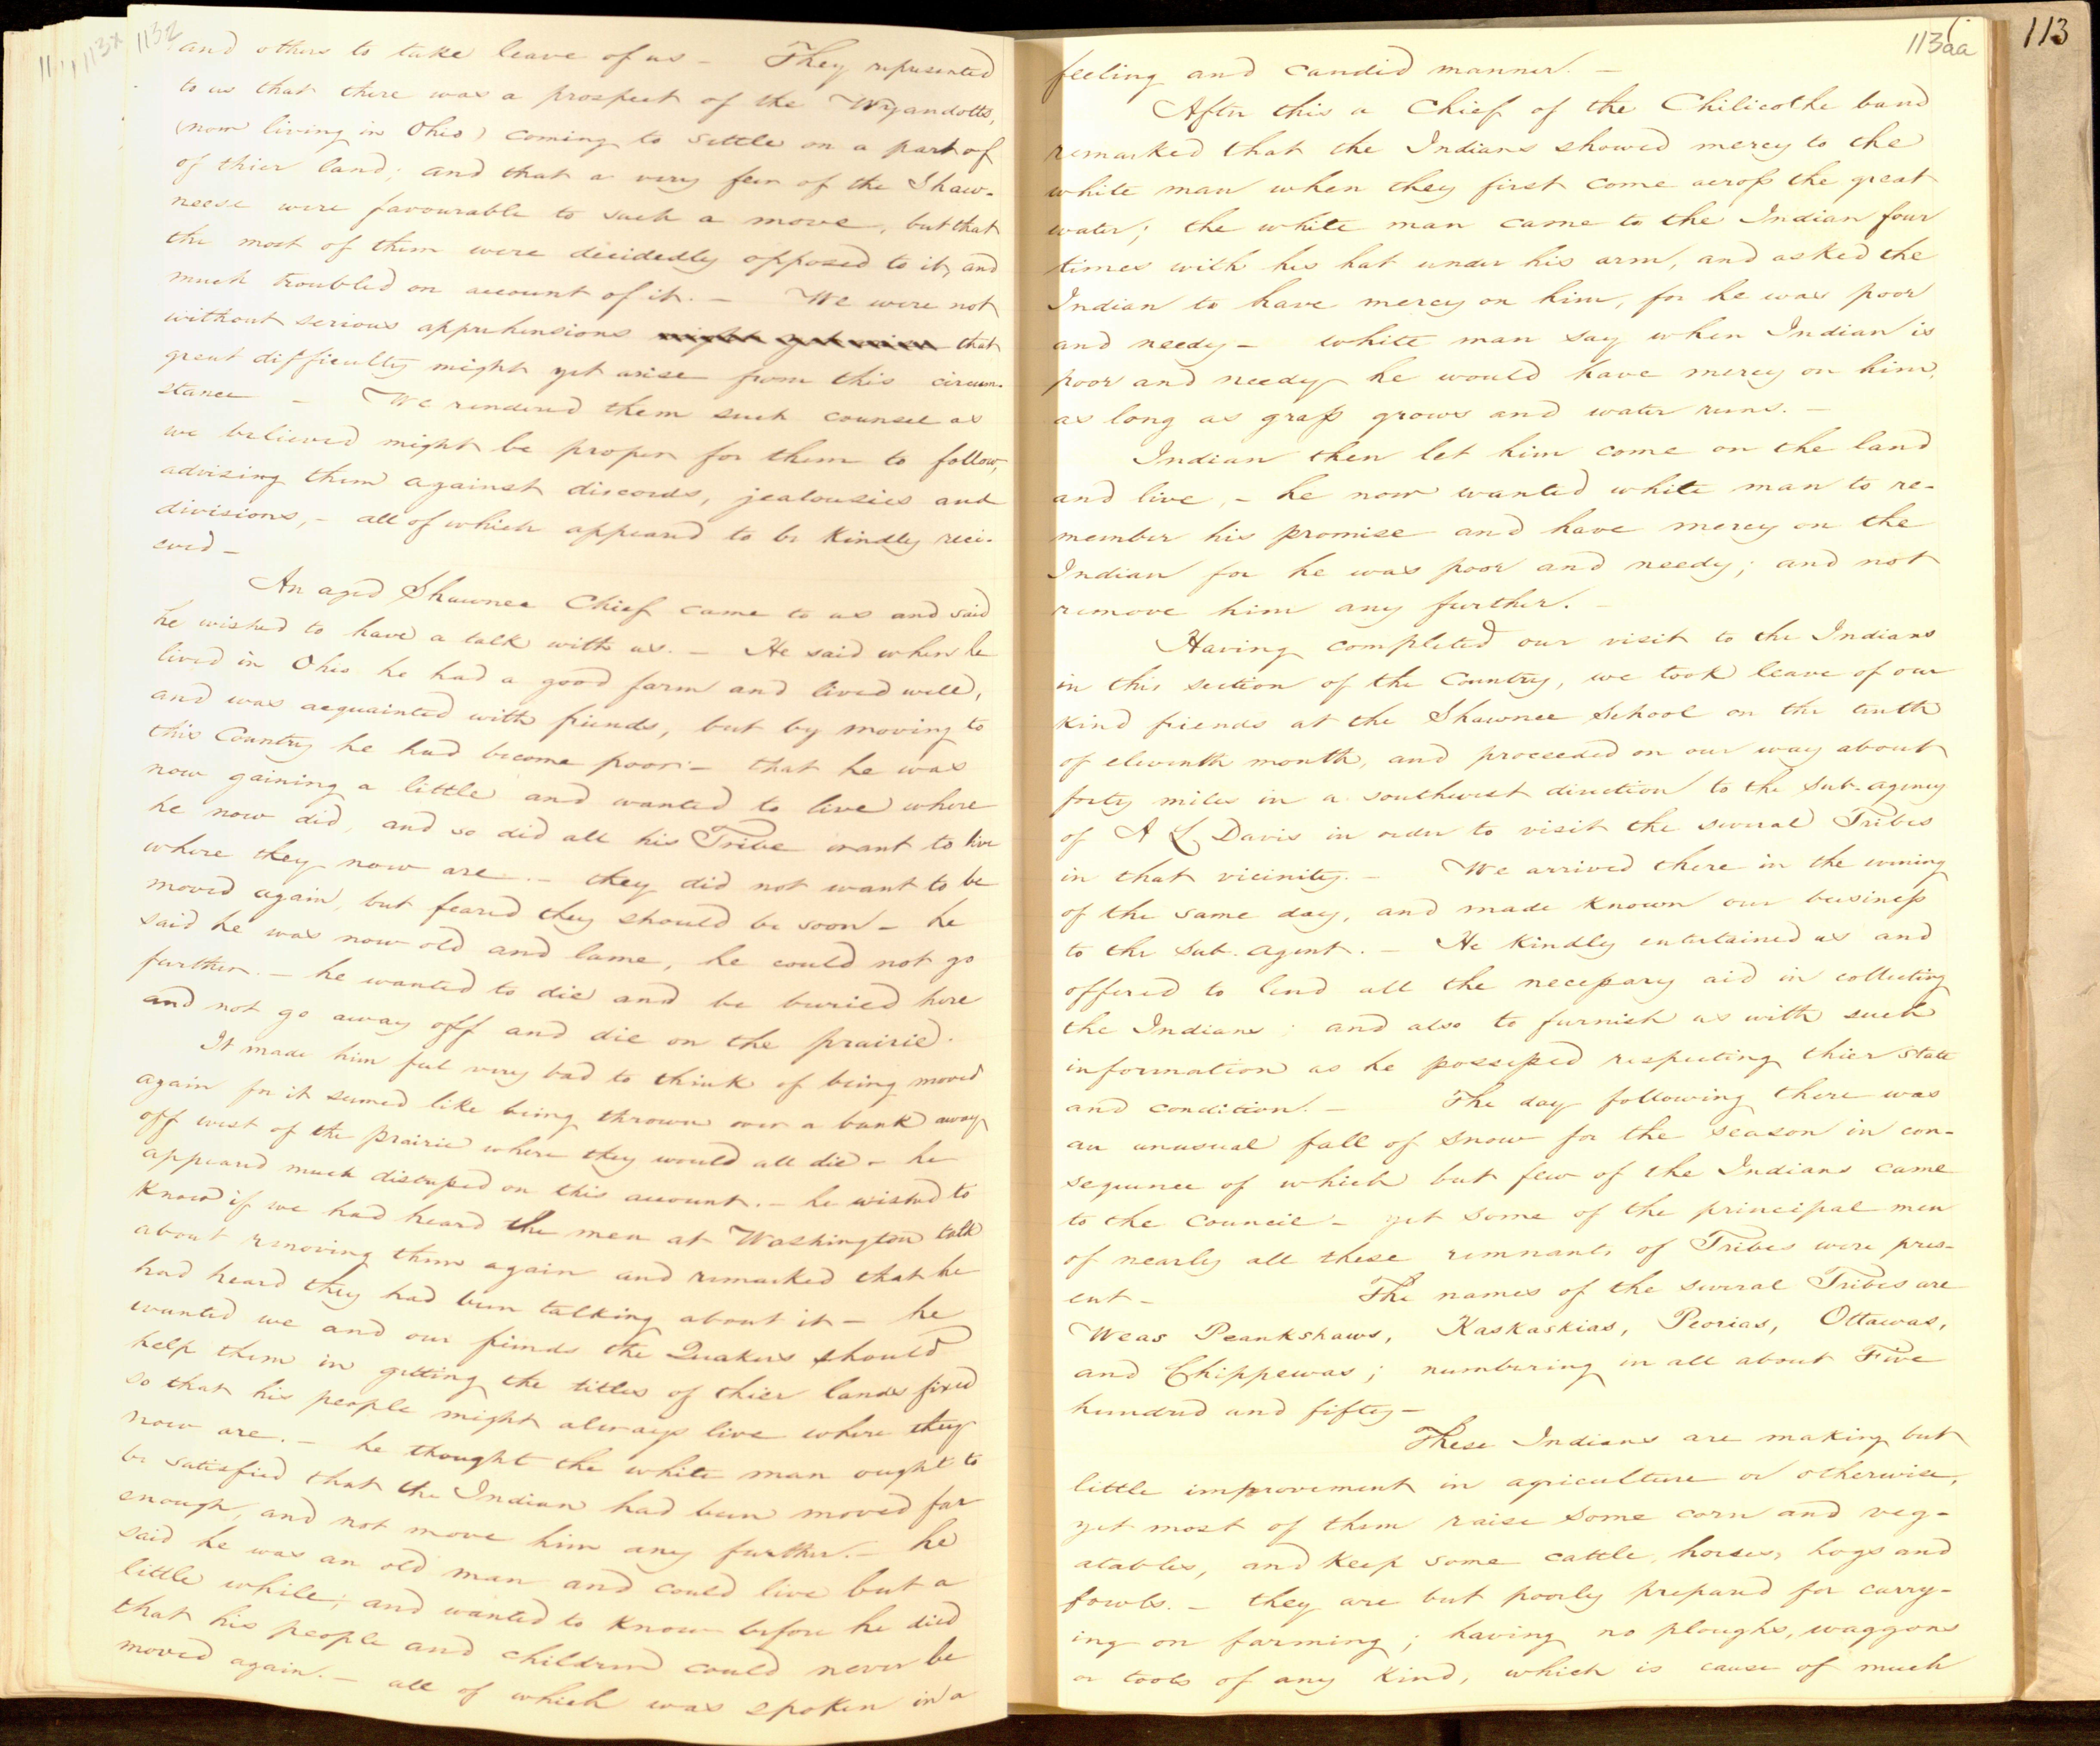 113z
and others to take leave of us - They represented
to us that there was a prospect of the Wyandotts,
(now living in Ohio) coming to settle on a part of
of thier land; and that a very few of the Shaw-
neese were favourable to such a move, but that
the most of them were decidedly opposed to it, and
much troubled on account of it. - We were not
without serious apprehensions might yet arise that
great difficulty might yet arise from this circum-
stance - We rendered them such counsel as
we believed might be proper for them to follow,
advising them against discords, jealousies and
divisions, - all of which appeared to be kindly recei-
eved -
An aged Shawnee Chief came to us and said
he wished to have a talk with us. - He said when he
lived in Ohio he had a good farm and lived well,
and was acquainted with friends, but by moving to
this Country he had become poor - that he was
now gaining a little and wanted to live where
he now did, and so did all his Tribe want to live
where they now are. - they did not want to be
moved again, but feared they should be soon - he
said he was now old and lame, he could not go
further. - he wanted to die and be buried here
and not go away off and die on the prairie.
It made him feel very bad to think of being moved
again for it seemed like being thrown over a bank away
off west of the prairie where they would all die - he
appeared much distressed on this account. - he wished to
know if we had heard the men at Washington talk
about removing them again and remarked that he
had heard they had been talking about it - he
wanted we and our friends the Quakers should
help them in getting the titles of thier lands fixed
so that his people might always live where they
now are. - he thought the white man ought to
be satisfied that the Indian had been moved far
enough, and not move him any further. - he
said he was an old man and could live but a
little while; and wanted to know before he died
that his people and children could never be
moved again. - all of which was spoken in a
113
113aa
feeling and candid manner. -
After this a Chief of the Chilicothe band
remarked that the Indians showed mercy to the
white man when they first come across the great
water; the white man came to the Indian four
times with his hat under his arm, and asked the
Indian to have mercy on him, for he was poor
and needy - white man say when Indian is
poor and needy he would have mercy on him,
as long as grass grows and water runs. -
Indian then let him come on the land
and live, - he now wanted white man to re-
member his promise and have mercy on the
Indian for he was poor and needy; and not
remove him any further. -
Having completed our visit to the Indians
in this section of the Country, we took leave of our
kind friends at the Shawnee School on the tenth
of eleventh month, and proceeded on our way about
forty miles in a southwest direction to the Sub-agency
of A L Davis in order to visit the several Tribes
in that vicinity. - We arrived there in the evening
of the same day, and made known our business
to the Sub-agent. - He kindly entertained us and
offered to lend all the necessary aid in collecting
the Indians; and also to furnish us with such
information as he possessed respecting thier state
and condition. - The day following there was
an unusual fall of snow for the season in con-
sequence of which but few of the Indians came
to the council - yet some of the principal men
of nearly all these remnants of Tribes were pres-
ent - The names of the several Tribes are
Weas Peankshaws, Kaskaskias, Peorias, Ottawas,
and Chippewas; numbering in all about Five
hundred and fifty -
These Indians are making but
little improvement in agriculture or otherwise,
yet most of them raise some corn and veg-
atables, and keep some cattle, horses, hogs and
fowls. - they are but poorly prepared for carry-
ing on farming; having no ploughs, waggons
or tools of any kind, which is cause of much